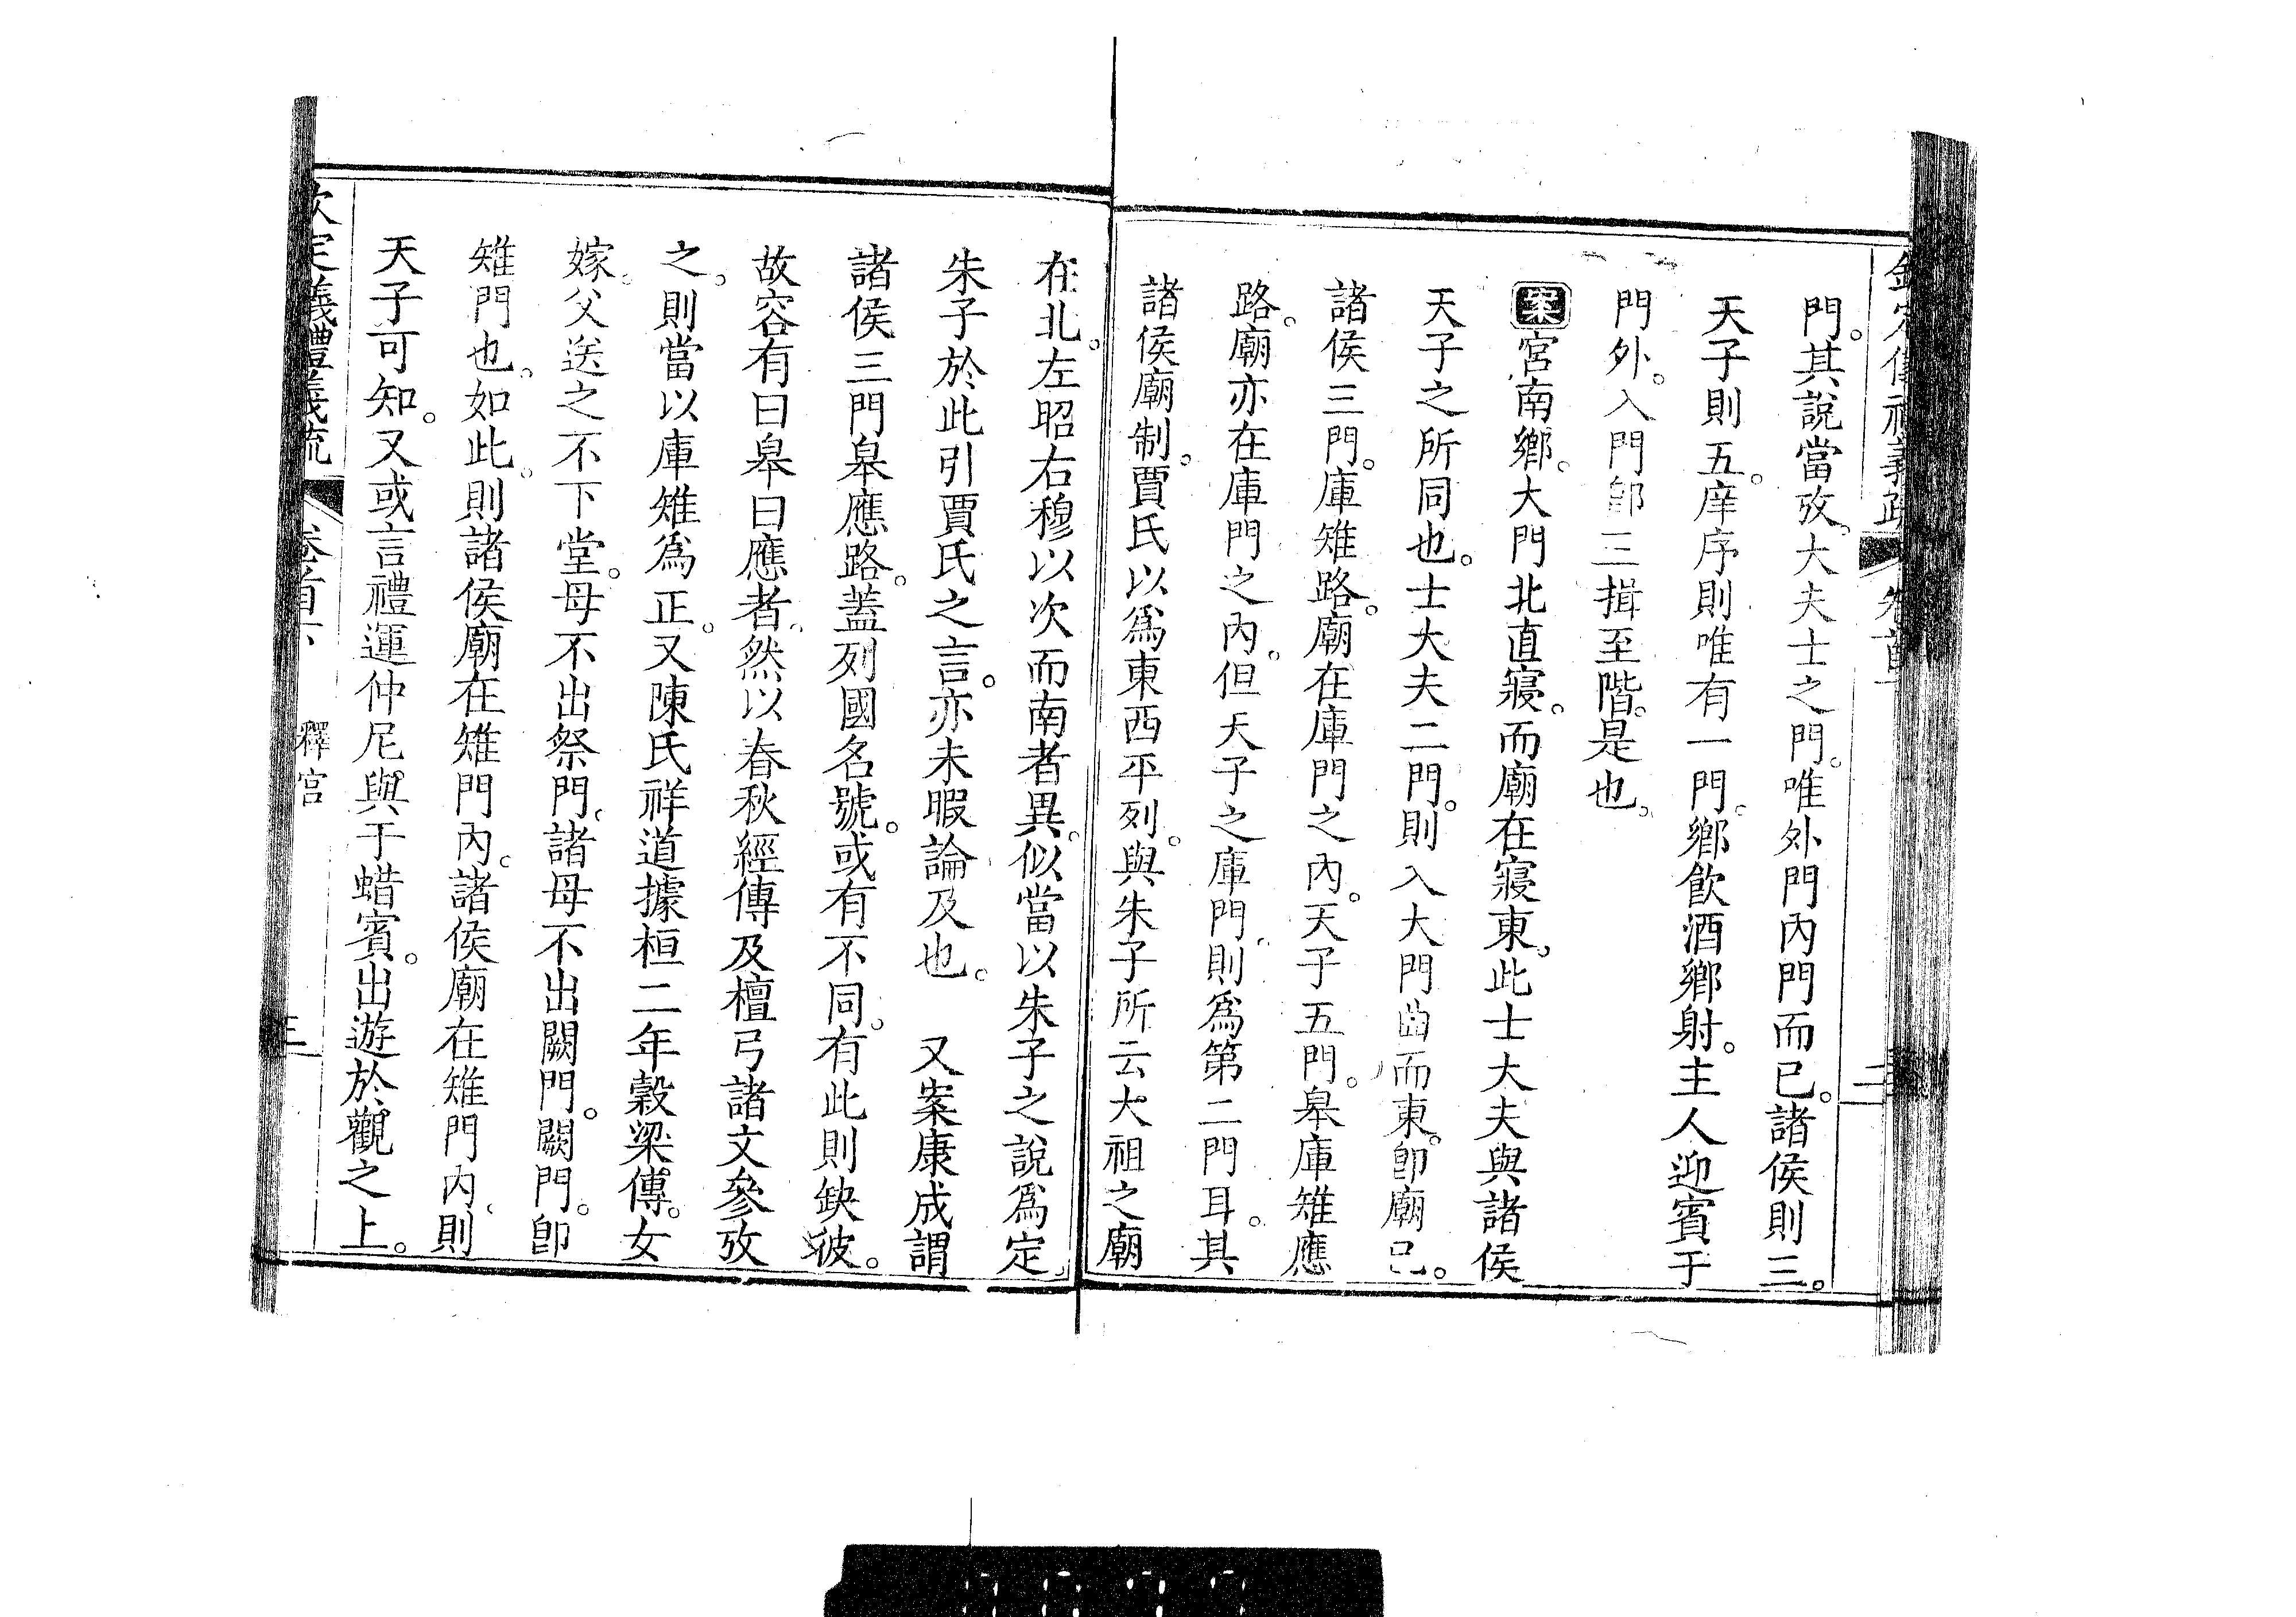 門。其說當攷。大夫士之門。唯外門內門而已。諸侯則三。
天子則五。庠序則唯有一門。鄉飲酒鄉射。主人迎賓于
門外。入門卽三揖至階。是也。
案宮南鄉。大門北直寢。而廟在寢東。此士大夫與諸侯
天子之所同也。士大夫二門。則入大門曲而東。卽廟已。
諸侯三門。庫雉路。廟在庫門之內。天子五門。皋庫雉應
路。廟亦在庫門之內。但天子之庫門。則爲第二門耳。其
諸侯廟制。賈氏以爲東西平列。與朱子所云大祖之廟
在北。左昭右穆以次而南者異。似當以朱子之說爲定。
朱子於此引賈氏之言。亦未暇論及也。 又案康成謂
諸侯三門皋應路。蓋列國名號。或有不同。有此則缺彼。
故容有曰皋曰應者。然以春秋經傳及檀弓諸文參攷
之。則當以庫雉爲正。又陳氏祥道據桓二年穀梁傳。女
嫁。父送之不下堂。母不出祭門。諸母不出闕門。闕門。卽
雉門也。如此。則諸侯廟在雉門內。諸侯廟在雉門內。則
天子可知。又或言禮運仲尼與于蜡賓。出遊於觀之上。
欽定義禮義疏 卷首下 釋宮 三